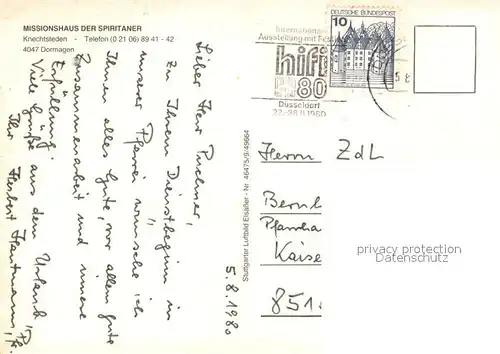 MISSIONSHAUS DER SPIRITANER
Knechtsteden - Telefon (0 21 06) 89 41 - 42
4047 Dormagen
5.8.1980
Lieber Herr Puchner,
zu Ihrem Dienstbeginn in
unserer Pfarrei wünsche ich
Ihnen alles Gute, vor allem gute
Zusammenarbeit und innere
Erfüllung.
Viele Grüße aus dem Urlaub
Ihr Herbert Hautmann, Pfr.
Stuttgarter Luftbild Elsäßer - Nr 46475/9/49664
Internationale
Ausstellung mit Fest
hifi
80
Düsseldorf
22-28.11.1980
10 DEUTSCHE BUNDESPOST
Herrn ZdL
Bernh
Pfarrha
Kaise
851
privacy protection
Datenschutz